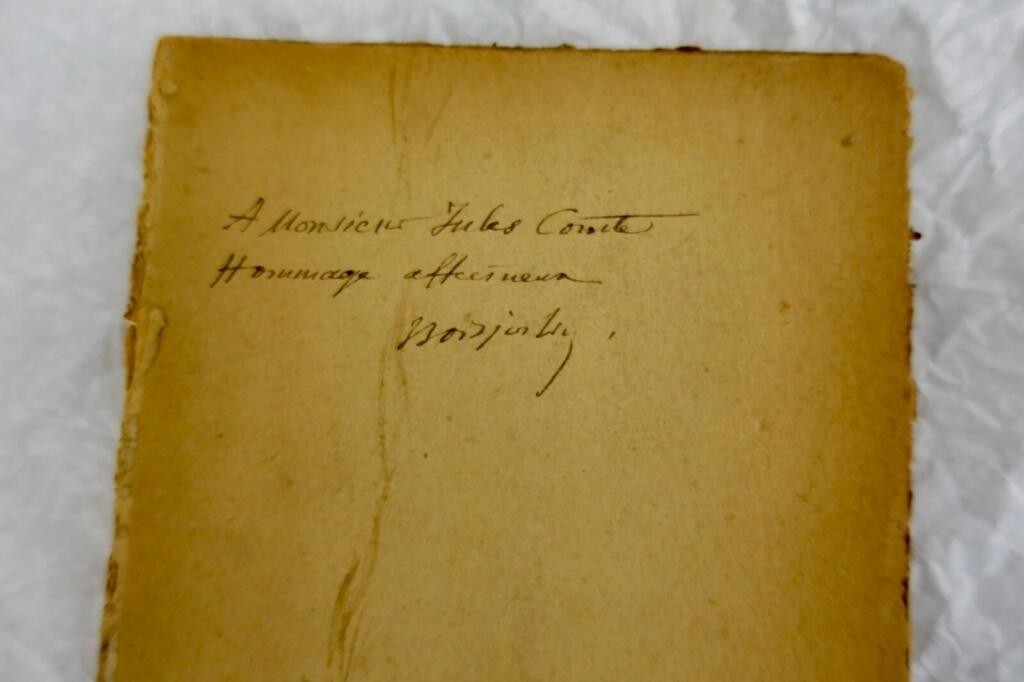 A Monsieur Jules Comte
Hommage affectueux
Boisjoslin